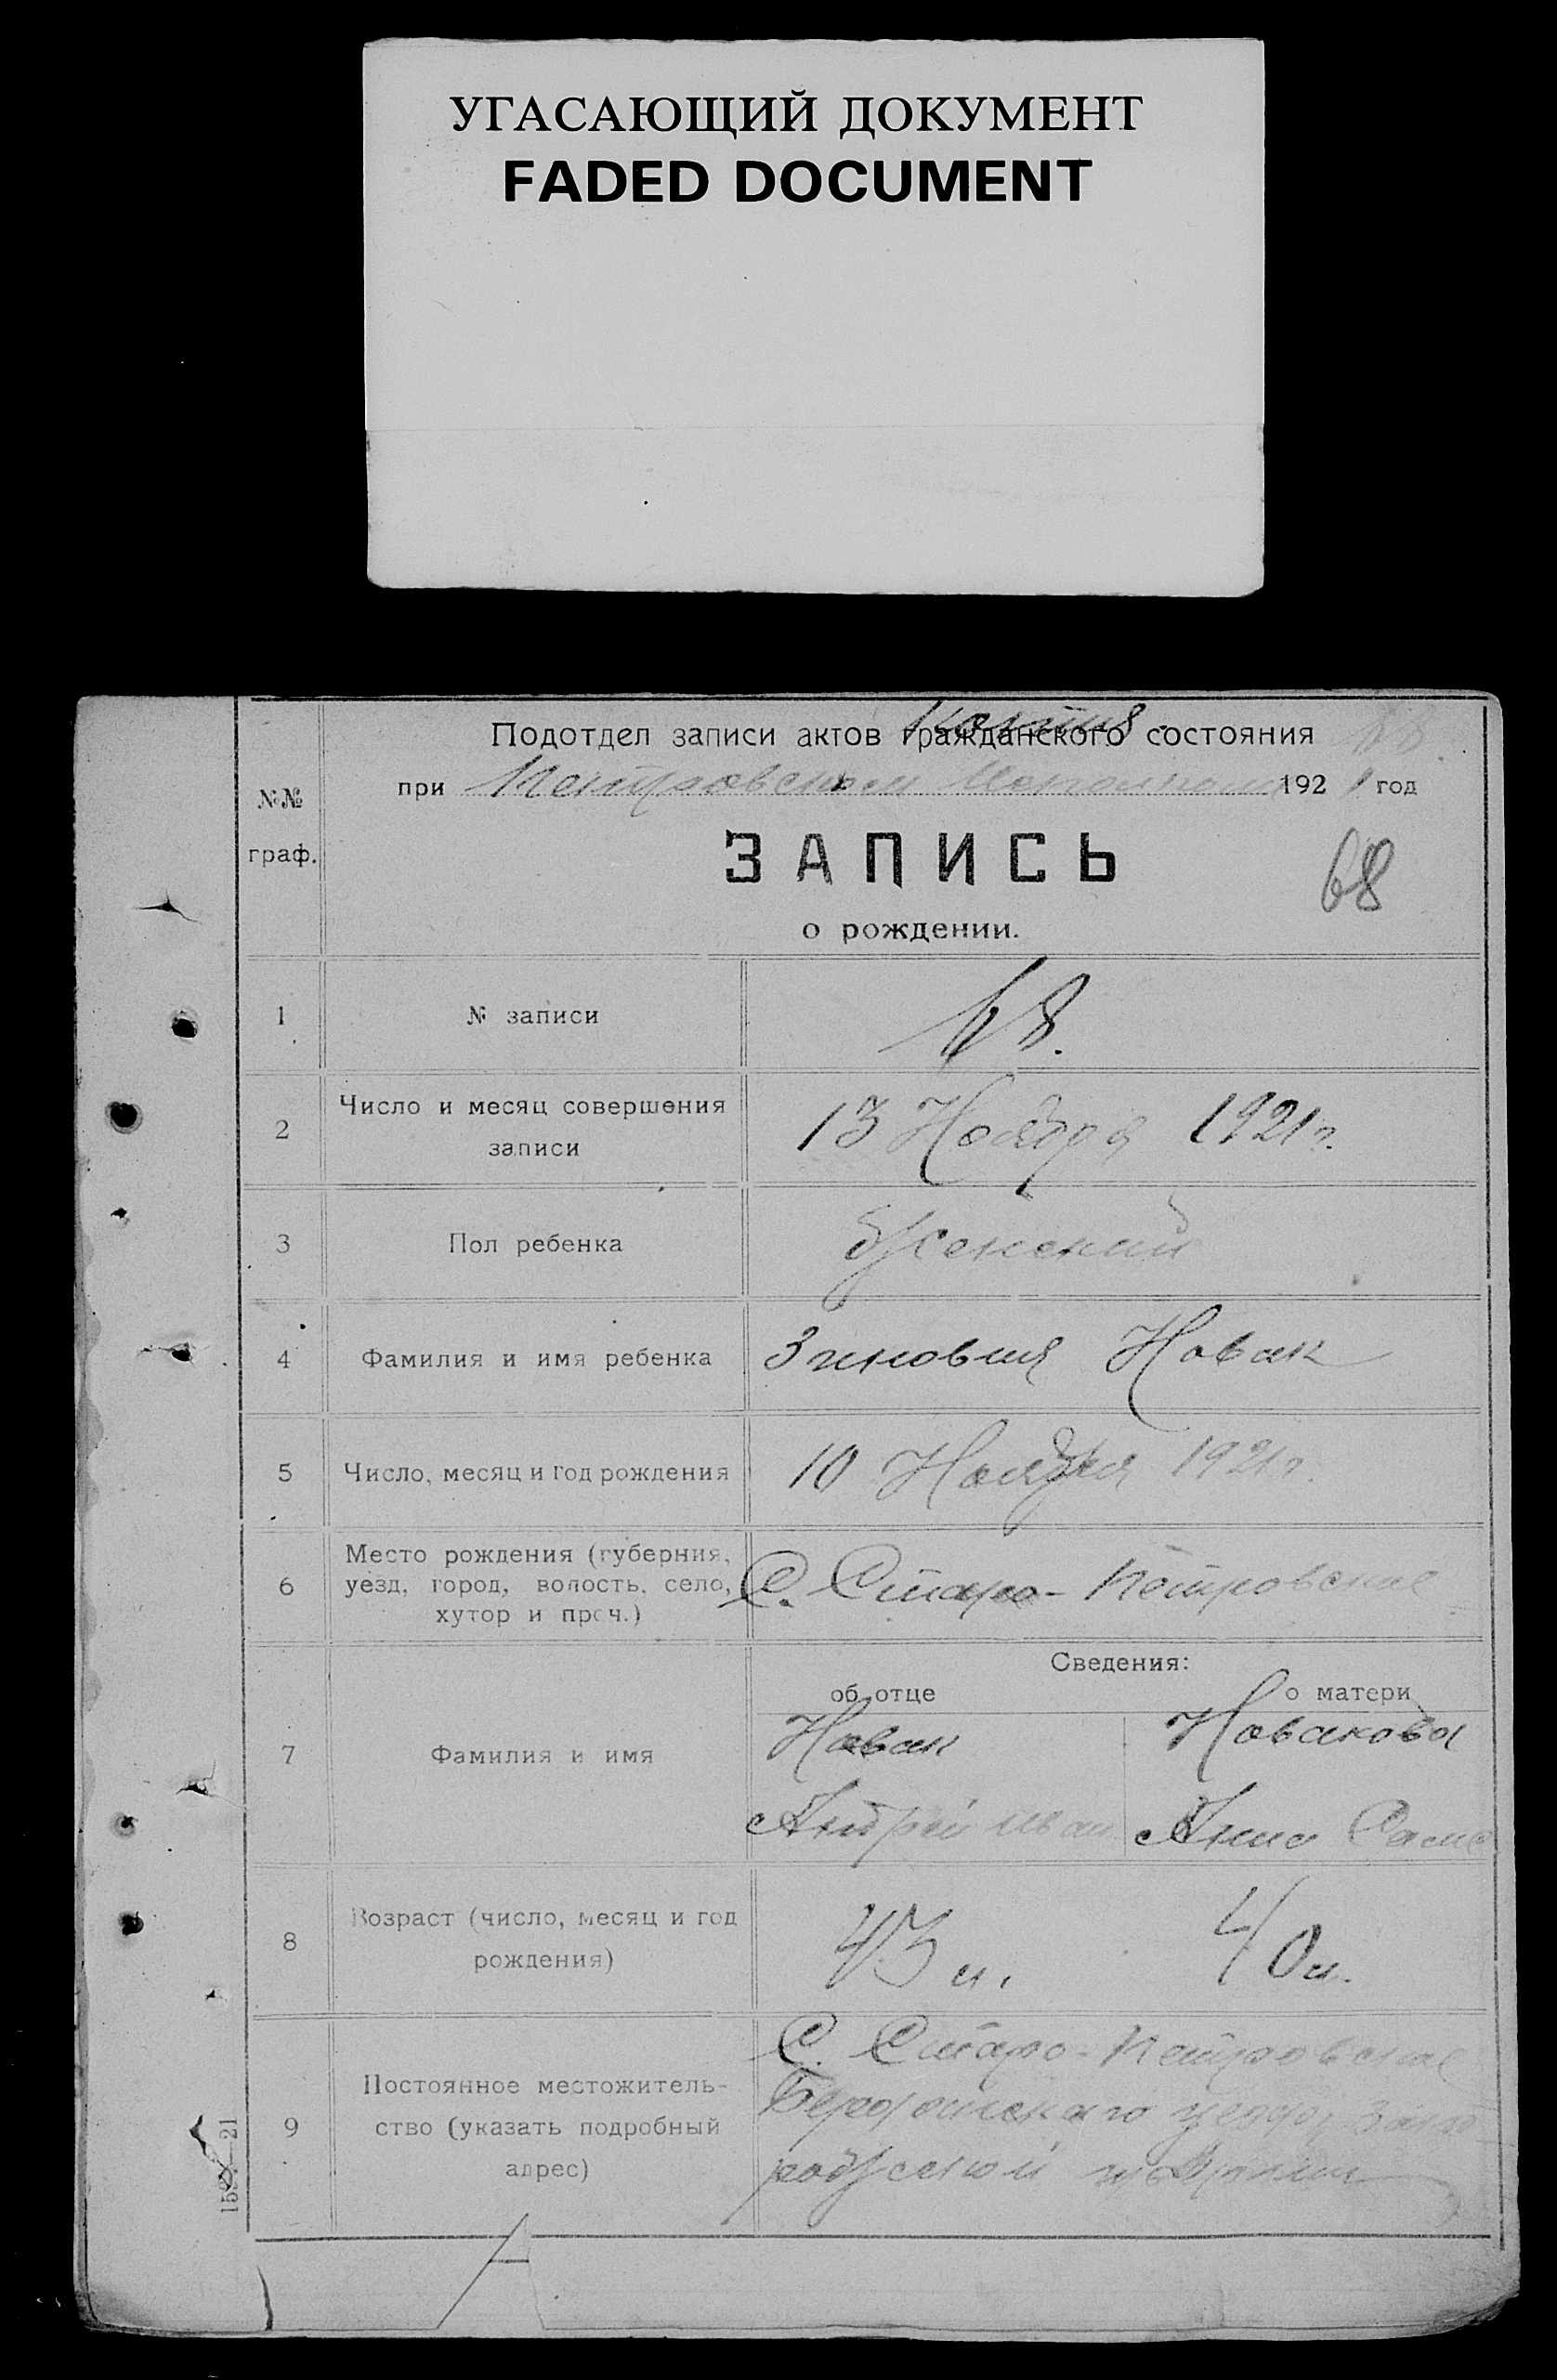 УГАСАЮЩИЙ ДОКУМЕНТ
FADED DOCUMENT
Подотдел записи актов гражданского состояния
при Петровском 1921 год
№№
граф.
ЗАПИСЬ
68
о рождении.
1 № записи 68.
2 Число и месяц совершения
записи
13 Ноября 1921 г.
3 Пол ребенка Женский
4 Фамилия и имя ребенка Зиновия Новак
5 Число, месяц и год рождения 10 Ноября 1921 г.
6 Место рождения (губерния,
уезд, город, волость, село,
хутор и проч.)
С. Старо-Петровские
Сведения:
об отце о матери
7 Фамилия и имя
Новак Новакова
Андрей Иван Анна
8 Возраст (число, месяц и год
рождения)
43 л. 40 л.
9 Постоянное местожитель-
ство (указать подробный
адрес)
С. Старо-Петровские
Бердянскаго уезда